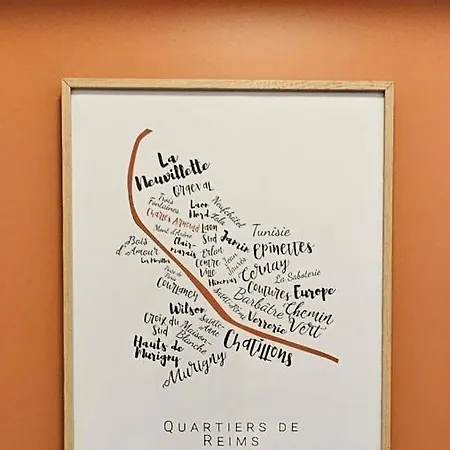 La
Neuvillette
Orgeval
Trois
Fontaines
Laon
Nord
Neufchâtel
Zola
Charles Arnould
Laon
Sud
Mont d'Arène
Jamin
Tunisie
Epinettes
Bois
d'Amour
Clair-
marais
Erlon
Centre
Ville
Jean
Jaurès
Cernay
La Sablerie
Porte de
Paris
Courlancy
Coutures
Europe
Saint-Rémi
Barbâtre
Chemin
Vert
Wilson
Sainte-
Anne
Verrerie
Croix du
Sud
Maison-
Blanche
Châtillons
Hauts de
Murigny
Murigny
QUARTIERS DE
REIMS